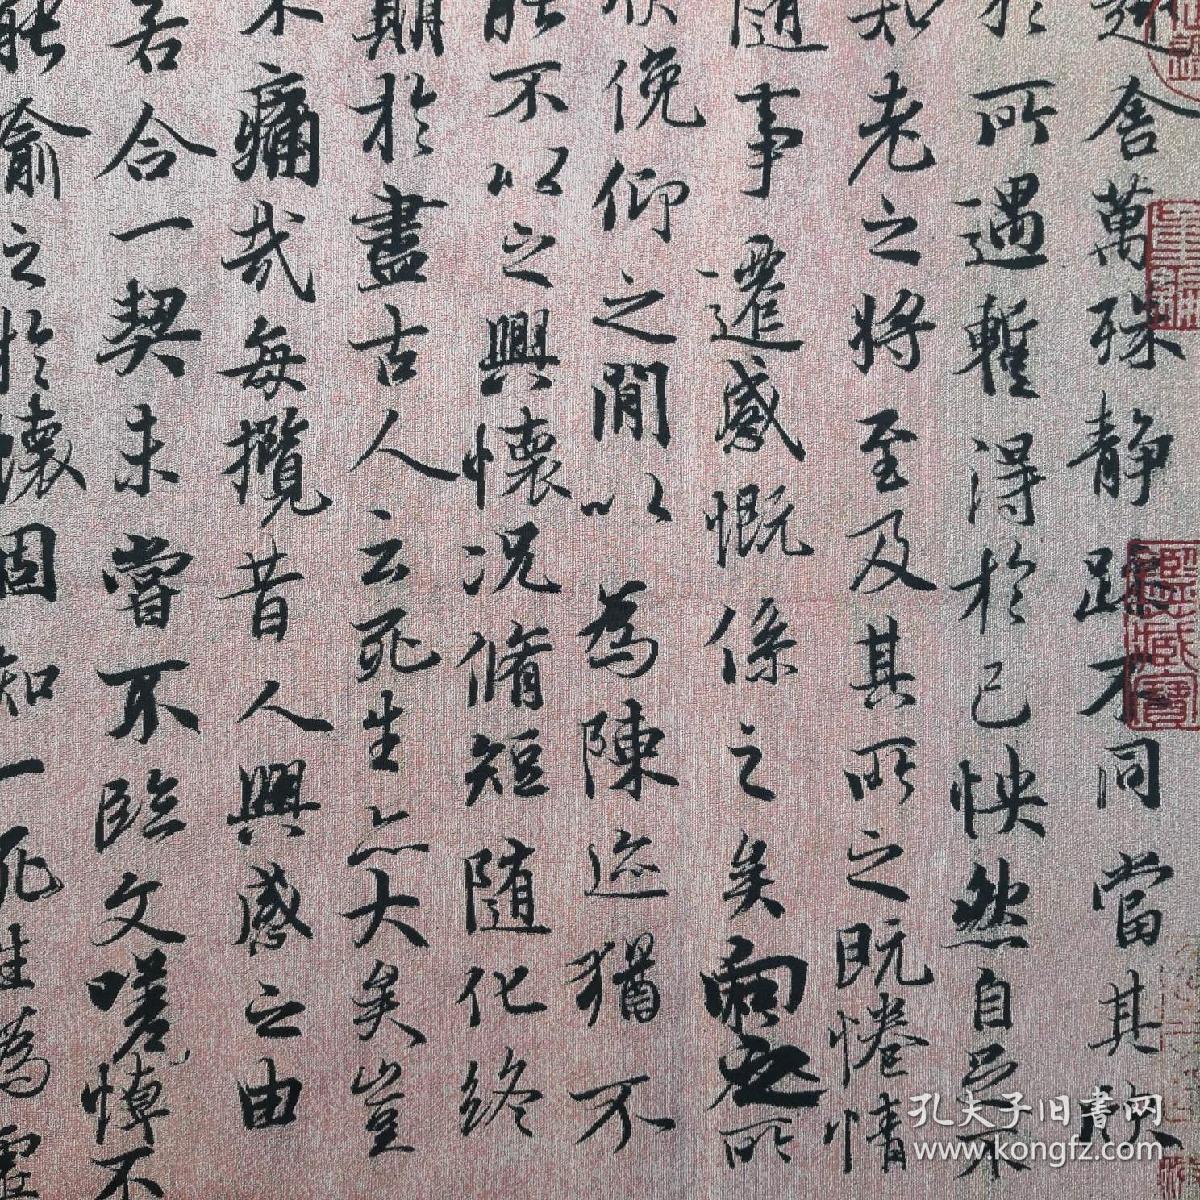 趣舍萬殊静躁不同當其欣
於所遇暫得於己怏然自足不
知老之將至及其所之既惓情
隨事遷感慨係之矣向之所
俛仰之間以為陳迹猶不
能不以之興懷況脩短隨化終
期於盡古人云死生亦大矣豈
不痛哉每攬昔人興感之由
若合一契未嘗不臨文嗟悼不
能喻之於懷固知一死生為虛
鑑藏寶
孔夫子旧書网
www.kongfz.com